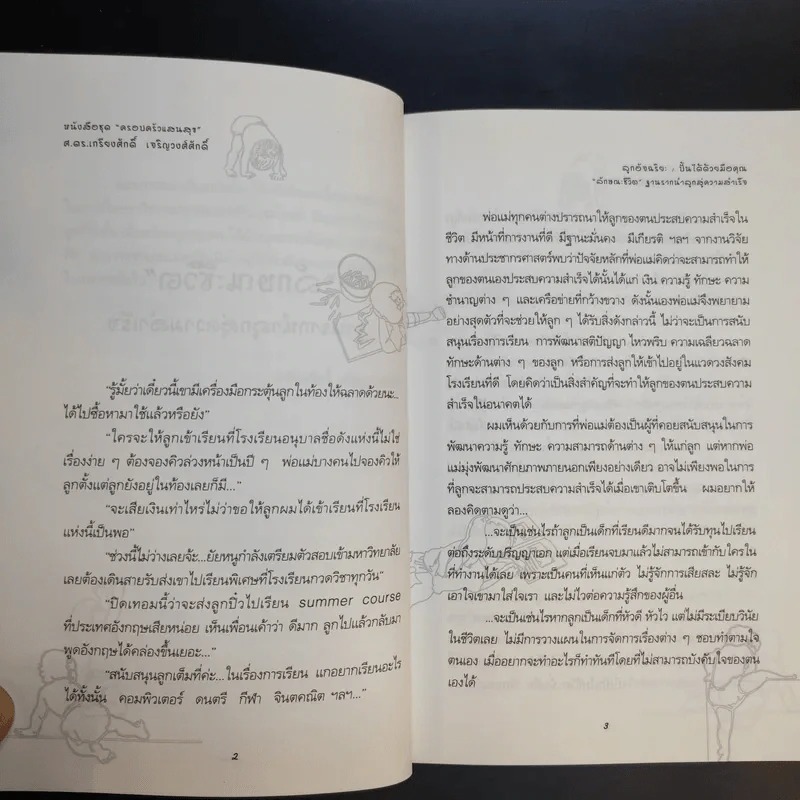 หนังสือชุด "ครอบครัวแสนสุข"
ศ.ดร.เกรียงศักดิ์ เจริญวงศ์ศักดิ์
"รู้มั้ยว่าเดี๋ยวนี้เขามีเครื่องมือกระตุ้นลูกในท้องให้ฉลาดด้วยนะ..
ได้ไปซื้อหามาใช้แล้วหรือยัง"
"ใครจะให้ลูกเข้าเรียนที่โรงเรียนอนุบาลชื่อดังแห่งนี้ไม่ใช่
เรื่องง่าย ๆ ต้องจองคิวล่วงหน้าเป็นปี ๆ พ่อแม่บางคนไปจองคิวให้
ลูกตั้งแต่ลูกยังอยู่ในท้องเลยก็มี..."
"จะเสียเงินเท่าไหร่ไม่ว่าขอให้ลูกผมได้เข้าเรียนที่โรงเรียน
แห่งนี้เป็นพอ"
"ช่วงนี้ไม่ว่างเลยจ้ะ...ยัยหนูกำลังเตรียมตัวสอบเข้ามหาวิทยาลัย
เลยต้องเดินสายรับส่งเขาไปเรียนพิเศษที่โรงเรียนกวดวิชาทุกวัน"
"ปิดเทอมนี้ว่าจะส่งลูกบิ๋วไปเรียน summer course
ที่ประเทศอังกฤษเสียหน่อย เห็นเพื่อนเค้าว่า ดีมาก ลูกไปแล้วกลับมา
พูดอังกฤษได้คล่องขึ้นเยอะ..."
"สนับสนุนลูกเต็มที่ค่ะ...ในเรื่องการเรียน แกอยากเรียนอะไร
ได้ทั้งนั้น คอมพิวเตอร์ ดนตรี กีฬา จินตคณิต ฯลฯ..."
2
ลูกอัจฉริยะ : ปั้นได้ด้วยมือคุณ
"ลักษณะชีวิต" ฐานรากนำลูกสู่ความสำเร็จ
พ่อแม่ทุกคนต่างปรารถนาให้ลูกของตนประสบความสำเร็จใน
ชีวิต มีหน้าที่การงานที่ดี มีฐานะมั่นคง มีเกียรติ ฯลฯ จากงานวิจัย
ทางด้านประชากรศาสตร์พบว่าปัจจัยหลักที่พ่อแม่คิดว่าจะสามารถทำให้
ลูกของตนเองประสบความสำเร็จได้นั้นได้แก่ เงิน ความรู้ ทักษะ ความ
ชำนาญต่าง ๆ และเครือข่ายที่กว้างขวาง ดังนั้นเองพ่อแม่จึงพยายาม
อย่างสุดตัวที่จะช่วยให้ลูก ๆ ได้รับสิ่งดังกล่าวนี้ ไม่ว่าจะเป็นการสนับ
สนุนเรื่องการเรียน การพัฒนาสติปัญญา ไหวพริบ ความเฉลียวฉลาด
ทักษะด้านต่าง ๆ ของลูก หรือการส่งลูกให้เข้าไปอยู่ในแวดวงสังคม
โรงเรียนที่ดี โดยคิดว่าเป็นสิ่งสำคัญที่จะทำให้ลูกของตนประสบความ
สำเร็จในอนาคตได้
ผมเห็นด้วยกับการที่พ่อแม่ต้องเป็นผู้ที่คอยสนับสนุนในการ
พัฒนาความรู้ ทักษะ ความสามารถด้านต่าง ๆ ให้แก่ลูก แต่หากพ่อ
แม่มุ่งพัฒนาศักยภาพภายนอกเพียงอย่างเดียว อาจไม่เพียงพอในการ
ที่ลูกจะสามารถประสบความสำเร็จได้เมื่อเขาเติบโตขึ้น ผมอยากให้
ลองคิดตามดูว่า...
...จะเป็นเช่นไรถ้าลูกเป็นเด็กที่เรียนดีมากจนได้รับทุนไปเรียน
ต่อถึงระดับปริญญาเอก แต่เมื่อเรียนจบมาแล้วไม่สามารถเข้ากับใครใน
ที่ทำงานได้เลย เพราะเป็นคนที่เห็นแก่ตัว ไม่รู้จักการเสียสละ ไม่รู้จัก
เอาใจเขามาใส่ใจเรา และไม่ไวต่อความรู้สึกของผู้อื่น
...จะเป็นเช่นไรหากลูกเป็นเด็กที่หัวดี หัวไว แต่ไม่มีระเบียบวินัย
ในชีวิตเลย ไม่มีการวางแผนในการจัดการเรื่องต่าง ๆ ชอบทำตามใจ
ตนเอง เมื่ออยากจะทำอะไรก็ทำทันทีโดยที่ไม่สามารถบังคับใจของตน
เองได้
3